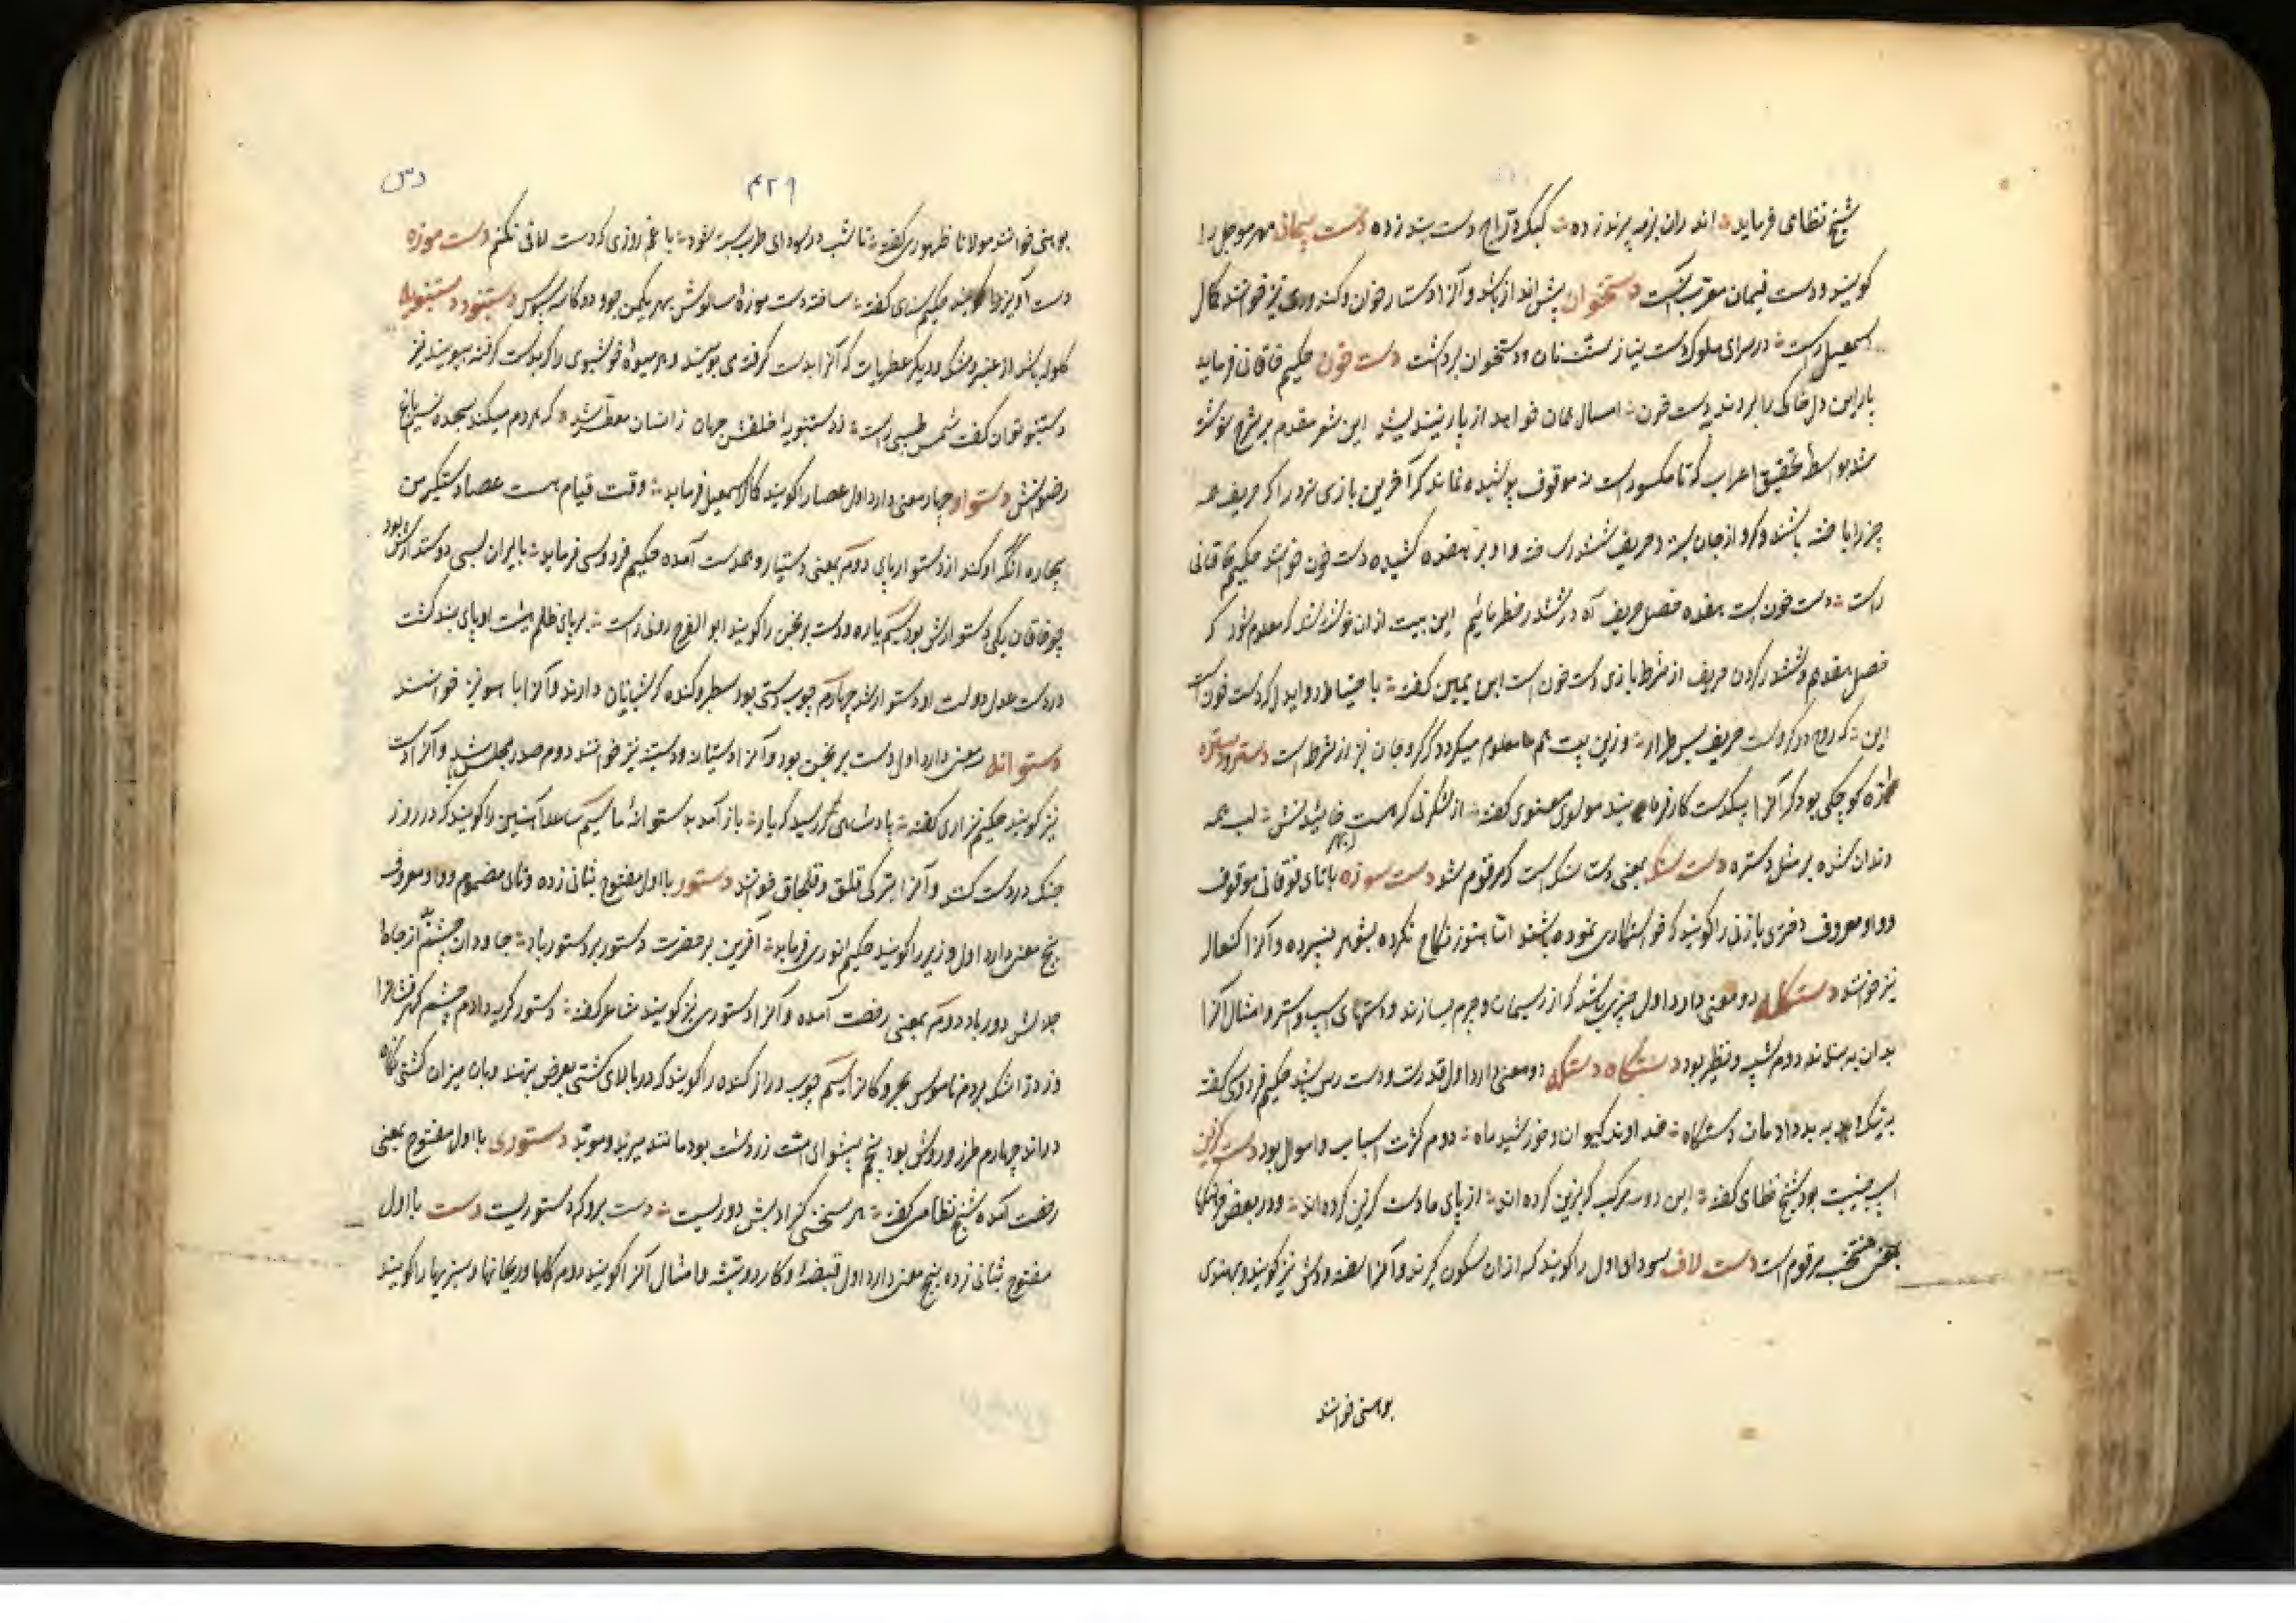 شیخ نظامی فرماید اندران بزمه پرند زده کبک و دراج دست بند زده دست پیمان مهر موجل را
گویند و دست فیمان معرب آنست دستخوان پیش انداز باشد و آنرا دستار خوان و کندوری نیز خوانند کمال
اسمعیل راست در سرای ملوک دست نیاز نان و دستخوان برداشت دست خون حکیم خاقانی فرماید
پار این دل خاکی را بردند بدست خون امسال همان خواهد از پار نیندیشد این شعر مقدم بر شرح نوشته
شد بواسطه تحقیق اعراب که تا مکسور است نه موقوف پوشیده نماند که آخرین بازی نرد را که حریف همه
چیز را باخته باشد و گرو از جان بسته و حریف ششدر ساخته و او بر هفده کشیده دست خون خوانند حکیم خاقانی
راست دست خون است هفده خصل حریف آه در ششدر خطر مائیم این بیت از آن نوشته شد که معلوم شود که
خصل هفدهم و ششدر کردن حریف از شرط بازی دست خون است ابن یمین گفته با احتیاط رو ایدل که دست خون است
این که روح در گروست حریف بس طرار و زین بیت هم معلوم میگردد که گرو جان نیز از شرط است دستره دستره
اره کوچکی بود که آنرا بیکدست کار فرمایند مولوی معنوی گفته از شکری که هست خائیدنش لب همه
دندان شده بر مثل دستره دست سنگ بمعنی دست سنگ است که مرقوم شد دست سوزه باتای فوقانی موقوف
و واو معروف دختری یا زنی را گویند که خواستگاری نموده باشند اما هنوز نکاح نکرده بشوهر نسپرده و آنرا
نیز خوانند دستکله دو معنی دارد اول چیزی باشد که از ریسمان و چرم بسازند و دستهای اسپ و استر و امثال آنرا
بدان به بندند دوم شبیه و نظیر بود دستگاه دستگه دو معنی دارد اول قدرت و دست رس باشد حکیم فردوسی گفته
به نیک و به بد دادمان دستگاه خداوند کیوان و خورشید و ماه دوم کثرت اسباب و اموال بود دست گزین
اسپ جنیبت بود شیخ نظامی گفته این دو سه مرکب که بزین کرده اند از پای ما دست گزین کرده اند و در بعضی فرهنگها
بمعنی منتخب مرقوم است دست لاف سودای اول را گویند که از آن شگون گیرند و آنرا سفته و دشت نیز گویند و بهندی
بوهنی خوانند
۴۲۹
دس
بوهنی خوانند مولانا ظهوری گفته تا شب در سودای طرب بسته شود با غم روزی که دست لافی نکنم دست موزه
دست آویز را گویند حکیم سنای گفته ساخته دست موزه سالوس بهر یکمن جو و دو کاسه سبوس دستنبو و دستنبویه
گلوله باشد از عنبر و مشک و دیگر عطریات که آنرا بدست گرفته می بویند و هر میوه خوشبوی را که بدست گرفته ببویند نیز
دستنبو توان گفت شمس طبسی راست ز دستنبویه خلقش جهان زانسان معطر شد که هر دم میکند سجده نسیم باغ
رضوانش دستوار چهار معنی دارد اول عصا را گویند کمال اسمعیل فرماید وقت قیام هست عصا دستگیر من
بیچاره آنکه او کند از دستوار پای دوم بمعنی دستیار و همدست آمده حکیم فردوسی فرماید بایران بسی دستوارش بود
چو خاقان یکی دستوارش بود سیم یاره و دست برنجن را گویند ابو الفرج رونی راست بر پای ظلم هیبت او پای بند گشت
در دست عدل دولت او دستوار شد چهارم چوب دستی بود سطبر و گنده که شبانان دارند و آنرا باهو نیز خوانند
دستوانه سه معنی دارد اول دست برنجن بود و آنرا دستیانه و دسته نیز خوانند دوم صدر مجلس باشد و آنرا دست
نیز گویند حکیم نزاری گفته پادشاهی مگر رسید که یار باز آمد بدستوانه ما سیم ساعد آهنین را گویند که در روز
جنگ در دست کنند و آنرا بترکی قلق و قلجاق خوانند دستور با اول مفتوح بثانی زده و ثالث مضموم و واو معروف
پنج معنی دارد اول وزیر را گویند حکیم انوری فرماید آفرین بر حضرت دستور بر دستور باد جاودان چشم بد از جاه
جلالش دور باد دوم بمعنی رخصت آمده و آنرا دستوری نیز گویند شاعر گفته دستور گریه دادم چشم گهرفشانرا
دزدانه اشک بردم ناموس بحر و کانرا سیم چوب دراز گنده را گویند که در بالای کشتی بعرض نهند و بان میزان کشتی نگاه
دارند چهارم طرز و روش بود پنجم پیشوای امت زردشت بود مانند هیربد و موبد دستوری با اول مفتوح بمعنی
رخصت آمده شیخ نظامی گفته هر سخنی کز ادبش دوریست دست برو که دستوریست دسته با اول
مفتوح بثانی زده پنج معنی دارد اول قبضه و کارد و تیشه و امثال آنرا گویند دوم گلها و ریحانها و سبزیها را گویند